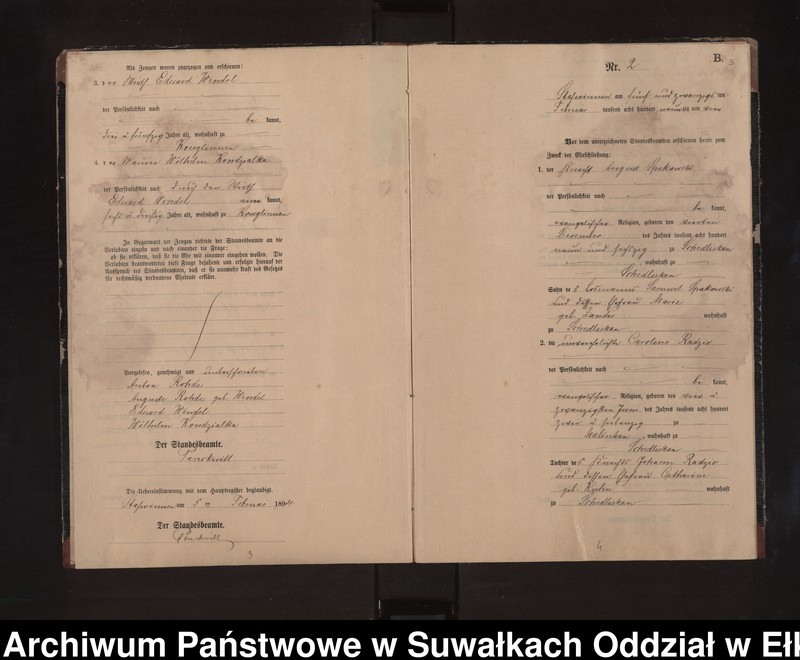 Als Zeugen waren zugezogen und erschienen:
3. der Wirth Eduard Wendel
der Persönlichkeit nach
be kannt,
drei u fünfzig Jahre alt, wohnhaft zu
4. der Maurer Wilhelm Kondzialka
der Persönlichkeit nach durch den Wirth
Eduard Wendel kannt,
sechs u dreißig Jahre alt, wohnhaft zu
In Gegenwart der Zeugen richtete der Standesbeamte an die
Verlobten einzeln und nach einander die Frage:
ob sie erklären, daß sie die Ehe mit einander eingehen wollen. Die
Verlobten beantworteten diese Frage bejahend und erfolgte hierauf der
Ausspruch des Standesbeamten, daß er sie nunmehr kraft des Gesetzes
für rechtmäßig verbundene Eheleute erkläre.
Vorgelesen, genehmigt und unterschrieben
Rohde
Auguste Rohde geb Wendel
Eduard Wendel
Wilhelm Kondzialka
Der Standesbeamte.
Die Uebereinstimmung mit dem Hauptregister beglaubigt
am 5 ten Februar 1894
Der Standesbeamte.
3
B.
3
Nr. 2
am fünf und zwanzigsten
Januar tausend acht hundert neunzig und vier
Vor dem unterzeichneten Standesbeamten erschienen heute zum
Zweck der Eheschließung:
1. der Knecht August Spakowski
der Persönlichkeit nach
be kannt,
evangelischer Religion, geboren den vierten
Dezember des Jahres tausend acht hundert
neun und sechszig zu Schedlisken
wohnhaft zu
Schedlisken
Sohn des Losmanns Samuel Spakowski
und dessen Ehefrau Marie
geb. wohnhaft
zu Schedlisken
2. die unverehelichte Caroline Radzio
der Persönlichkeit nach
be kannt,
evangelischer Religion, geboren den vier u.
zwanzigsten Juni des Jahres tausend acht hundert
zwei u siebenzig zu
Malinken, wohnhaft zu
Schedlisken
Tochter des Knechts Johann Radzio
und dessen Ehefrau Catharine
geb. wohnhaft
zu Schedlisken
4
Archiwum Państwowe w Suwałkach Oddział w Ełk